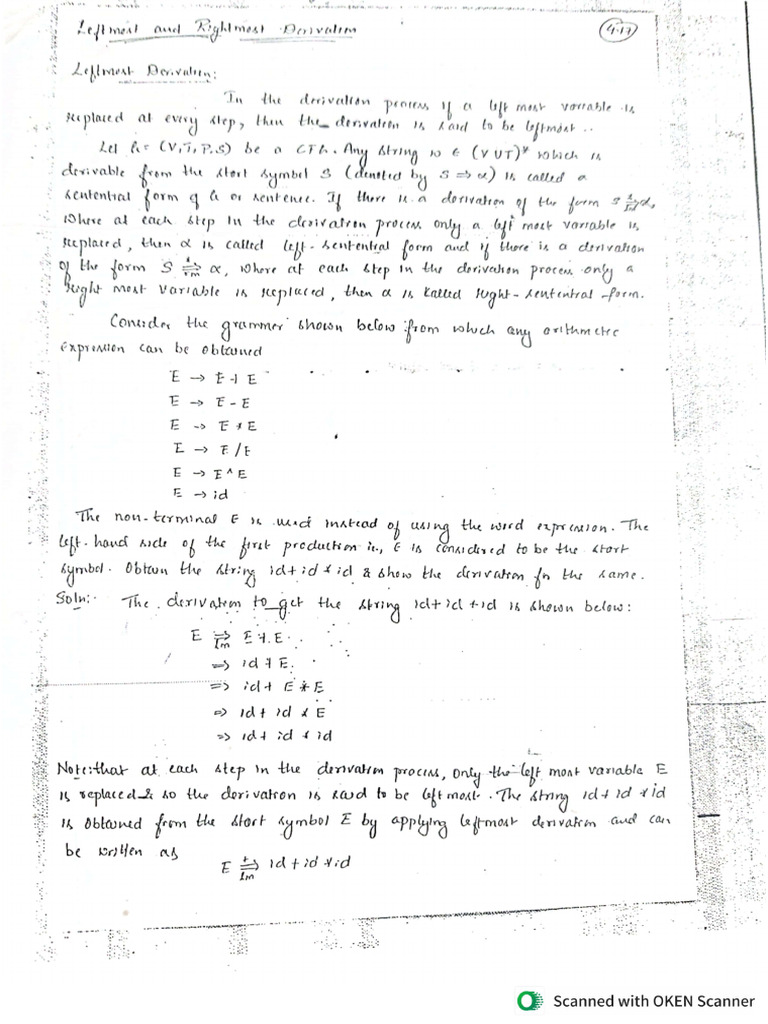 Leftmost and Rightmost Derivation
4.17
Leftmost Derivation:
In the derivation process if a left most variable is
replaced at every step, then the derivation is said to be leftmost..
Let G = (V,T,P,S) be a CFG. Any string w ∈ (V U T)* which is
derivable from the start symbol S (denoted by S ⇒ α) is called a
sentential form of G or sentence. If there is a derivation of the form S ⇒ α,
lm
where at each step in the derivation process only a left most variable is
replaced, then α is called left-sentential form and if there is a derivation
of the form S ⇒ α, where at each step in the derivation process only a
rm
Right most variable is replaced, then α is called right-sentential form.
Consider the grammer shown below from which any arithmetic
expression can be obtained
E → E + E
E → E - E
E → E * E
E → E / E
E → E ^ E
E → id
The non-terminal E is used instead of using the word expression. The
left-hand side of the first production i.e., E is considered to be the start
symbol. Obtain the string id + id * id & show the derivation for the same.
Soln:- The derivation to get the string id + id + id is shown below:
E ⇒ E + E
lm
⇒ id + E
⇒ id + E * E
⇒ id + id * E
⇒ id + id * id
Note: that at each step in the derivation process, only the left most variable E
is replaced & so the derivation is said to be left most. The string id + id * id
is obtained from the start symbol E by applying leftmost derivation and can
be written as
E ⇒ id + id * id
lm
Scanned with OKEN Scanner